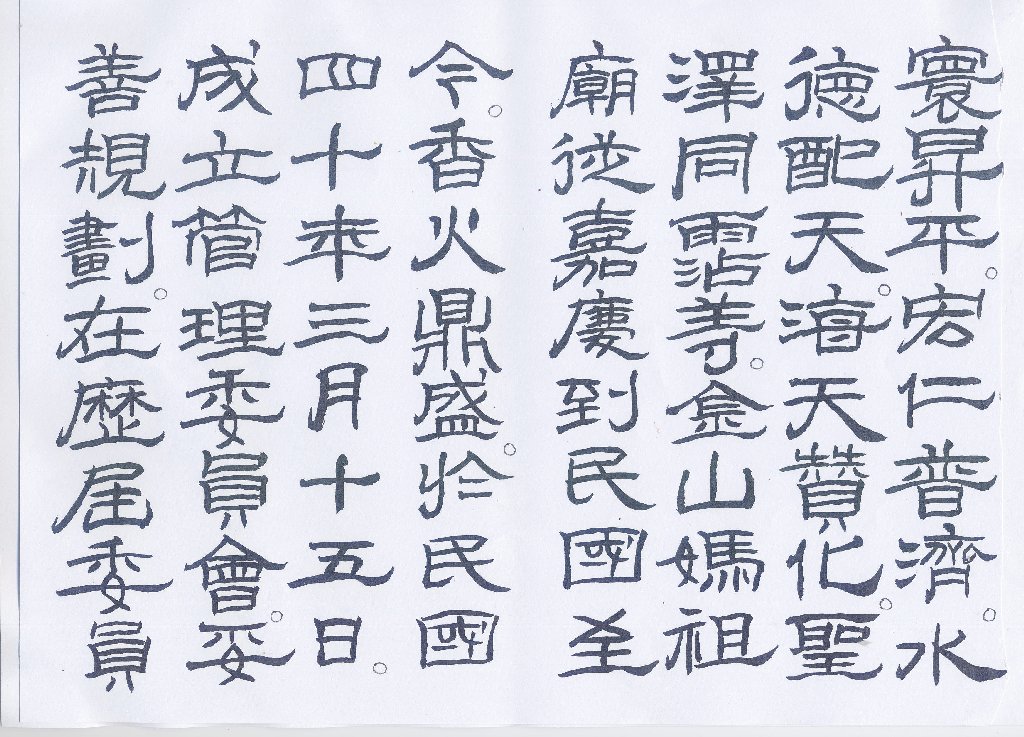 寰昇平。宏仁普濟。水
德配天。海天贊化。聖
澤同霑等。金山媽祖
廟從嘉慶到民國至
今。香火鼎盛。於民國
四十年三月十五日。
成立管理委員會。妥
善規劃。在歷屆委員